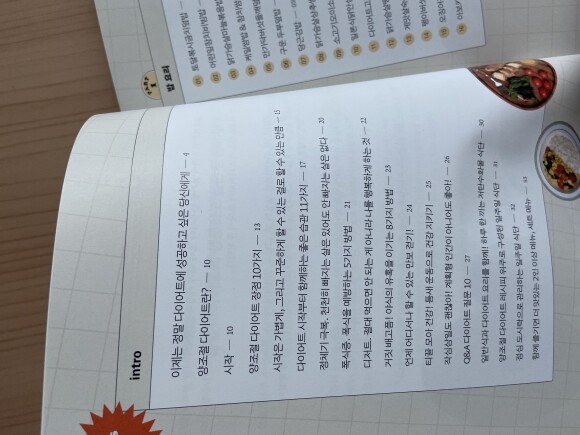 intro
이제는 정말 다이어트에 성공하고 싶은 당신에게 — 4
양조절 다이어트란? — 10
시작 — 10
양조절 다이어트 장점 10가지 — 13
시작은 가볍게, 그리고 꾸준하게 할 수 있는 걸로 할 수 있는 만큼 — 15
다이어트 시작부터 함께하는 좋은 습관 11가지 — 17
정체기 극복. 천천히 빠지는 살은 있어도 안 빠지는 살은 없다 — 20
폭식증. 폭식을 예방하는 5가지 방법 — 21
디저트. 절대 먹으면 안 되는 게 아니라 나를 행복하게 하는 것 — 22
거짓 배고픔! 야식의 유혹을 이기는 8가지 방법 — 23
언제 어디서나 할 수 있는 만보 걷기! — 24
티끌 모아 건강! 틈새 운동으로 건강 지키기 — 25
작심삼일도 괜찮아! 계획형 인간이 아니어도 좋아! — 26
Q&A 다이어트 질문 10 — 27
일반식과 다이어트 요리를 함께! 하루 한 끼는 저탄수화물 식단 — 30
양조절 다이어트 레시피 위주로 구성된 일주일 식단 — 31
점심 도시락으로 관리하는 일주일 식단 — 32
함께 즐기면 더 맛있는 2인 이상 메뉴, 세트 메뉴 — 33
밥 요리
01
02
03
04
05
06 구운 두부덮밥
07 당근김밥
08
09
10
11
12
13
14
15
16